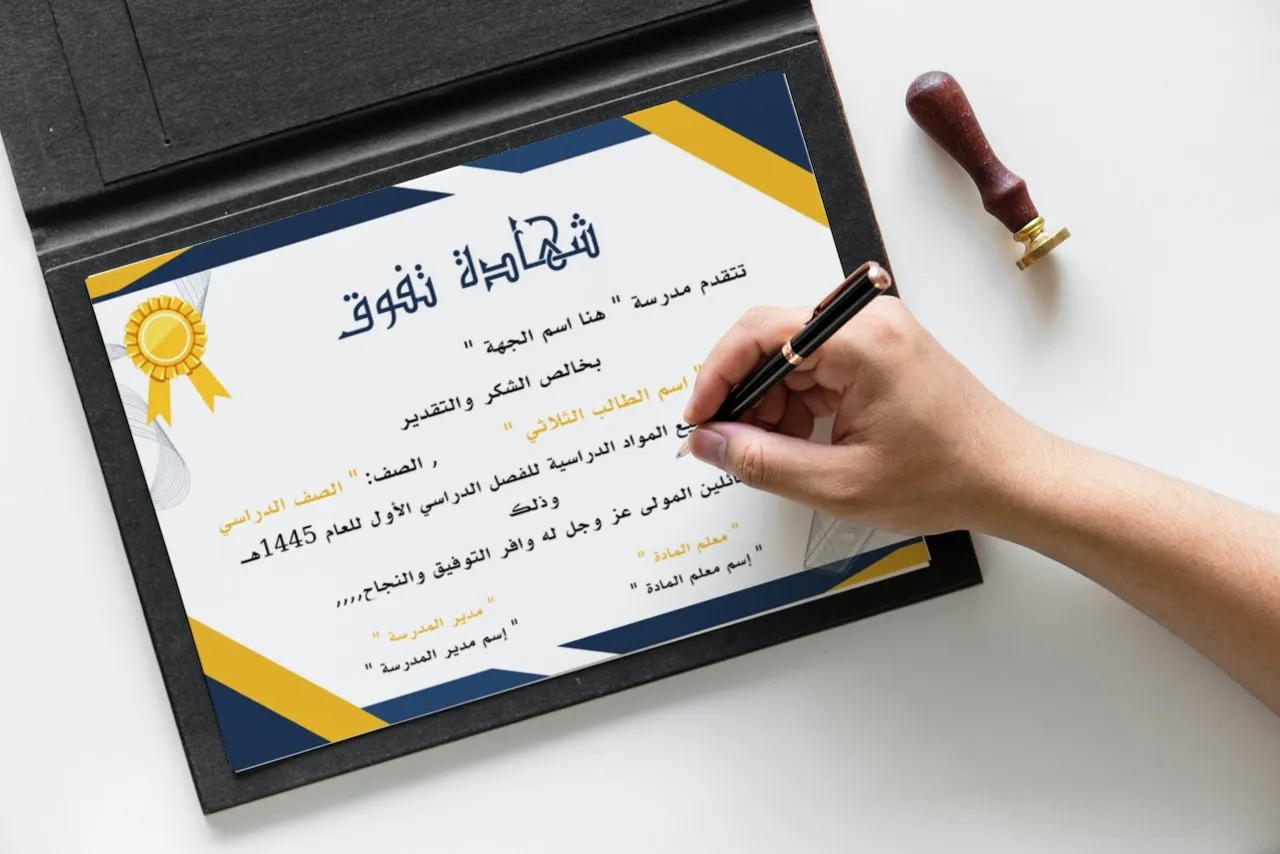 شهادة تفوق
تتقدم مدرسة " هنا اسم الجهة "
بخالص الشكر والتقدير
" اسم الطالب الثلاثي "
, الصف: " الصف الدراسي
المواد الدراسية للفصل الدراسي الأول للعام 1445هـ
وذلك
المولى عز وجل له وافر التوفيق والنجاح,,,,
" معلم المادة "
" إسم معلم المادة "
" مدير المدرسة "
" إسم مدير المدرسة "